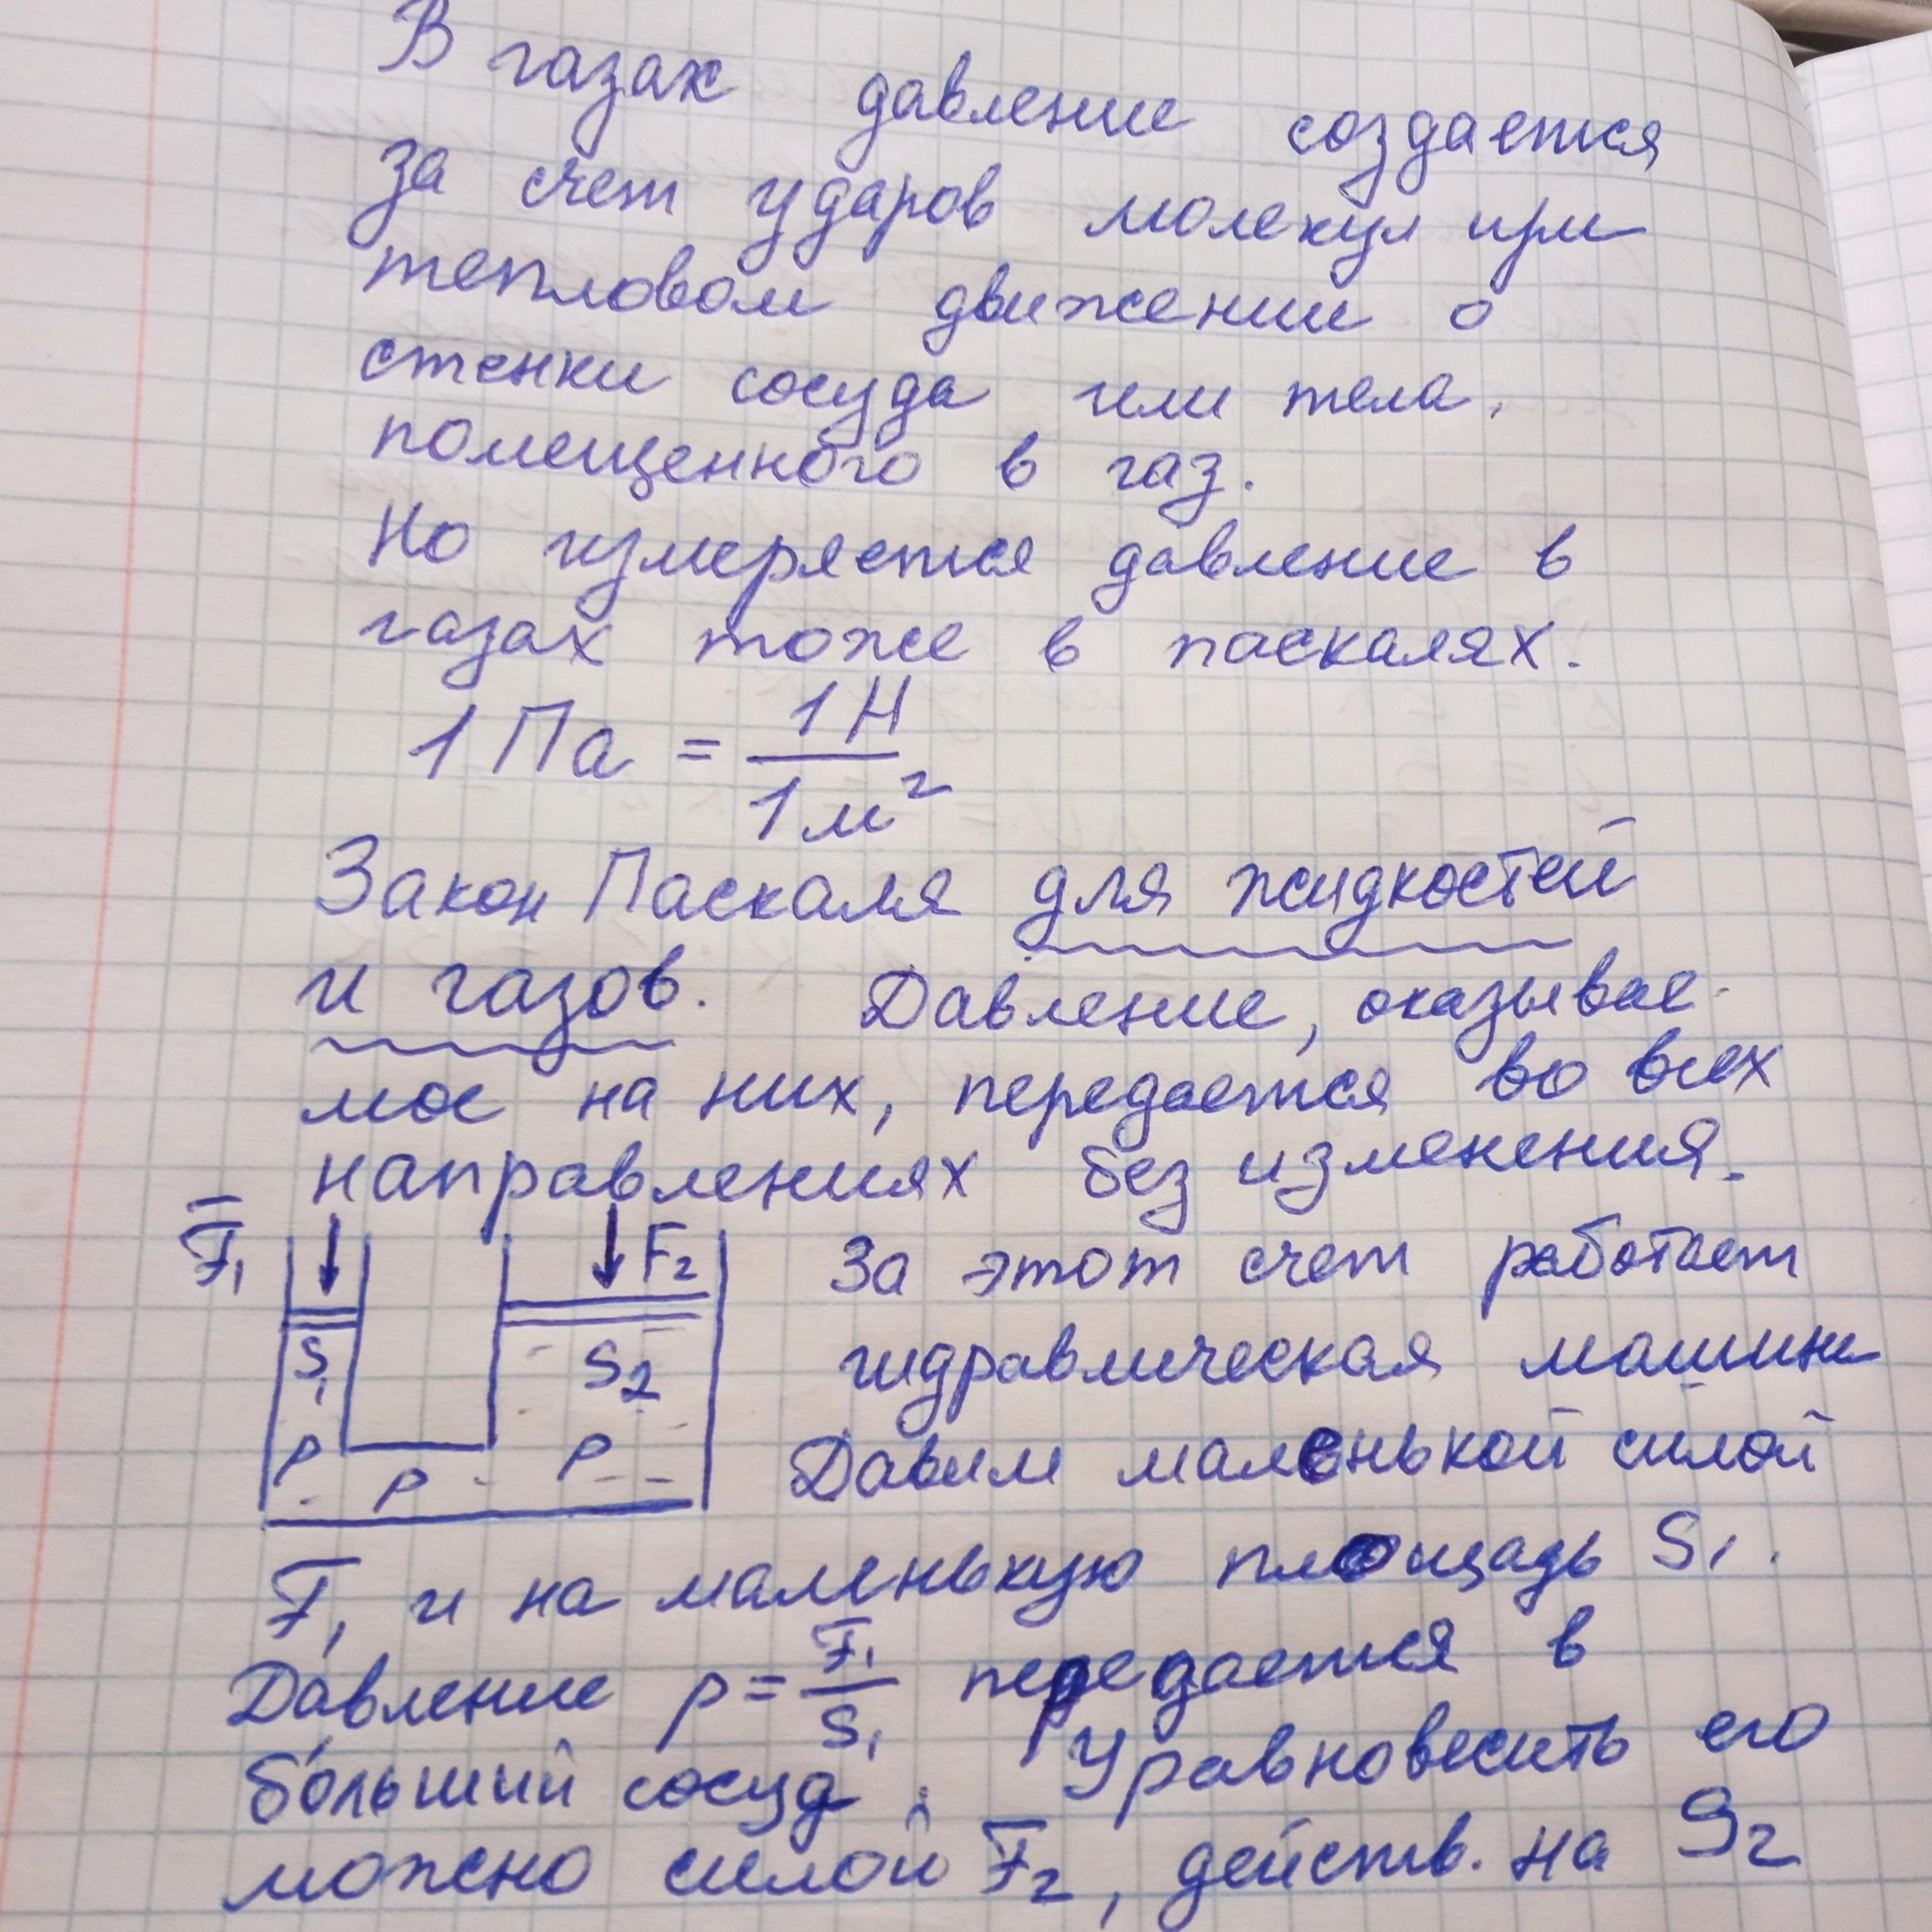 В газах давление создается
за счет ударов молекул при
тепловом движении о
стенки сосуда или тела,
помещенного в газ.
Но измеряется давление в
газах тоже в паскалях.
1 Па = 1Н / 1м²
Закон Паскаля для жидкостей
и газов. Давление, оказывае-
мое на них, передается во всех
направлениях без изменения.
F₁ F₂ За этот счет работает
S₁ S₂ гидравлическая машина
P P P Давим маленькой силой
F₁ и на маленькую площадь S₁.
Давление p = F₁ / S₁ передается в
бо́льший сосуд. Уравновесить его
можно силой F₂, действ. на S₂